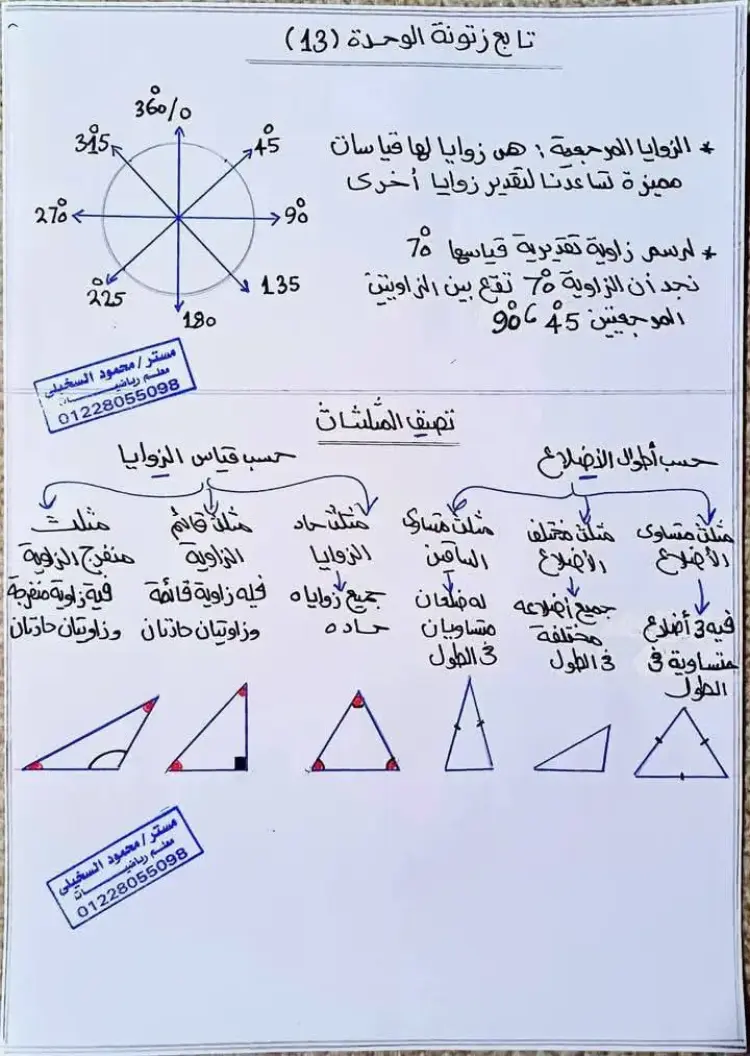 تابع زتونة الوحدة (13)
360°/0
45°
90°
135
180
225°
270°
315°
* الزوايا المرجعية : هى زوايا لها قياسات
مميزة تساعدنا لتقدير زوايا أخرى
* لرسم زاوية تقديرية قياسها 70°
نجد أن الزاوية 70° تقع بين الزاويتين
المرجعيتين 45° ، 90°
مستر / محمود السخيلى
معلم رياضيــــات
01228055098
تصيف المثلثات
حسب أطوال الأضلاع
مثلث متساوى
الأضلاع
فيه 3 أضلاع
متساوية فى
الطول
مثلث مختلف
الأضلاع
جميع أضلاعه
مختلفة
فى الطول
مثلث متساوى
الساقين
له ضلعان
متساويان
فى الطول
حسب قياس الزوايا
مثلث حاد
الزوايا
جميع زواياه
حاده
مثلث قائم
الزاوية
فيه زاوية قائمة
وزاويتان حادتان
مثلث
منفرج الزاوية
فية زاوية منفرجة
وزاويتان حادتان
مستر / محمود السخيلى
معلم رياضيــــات
01228055098